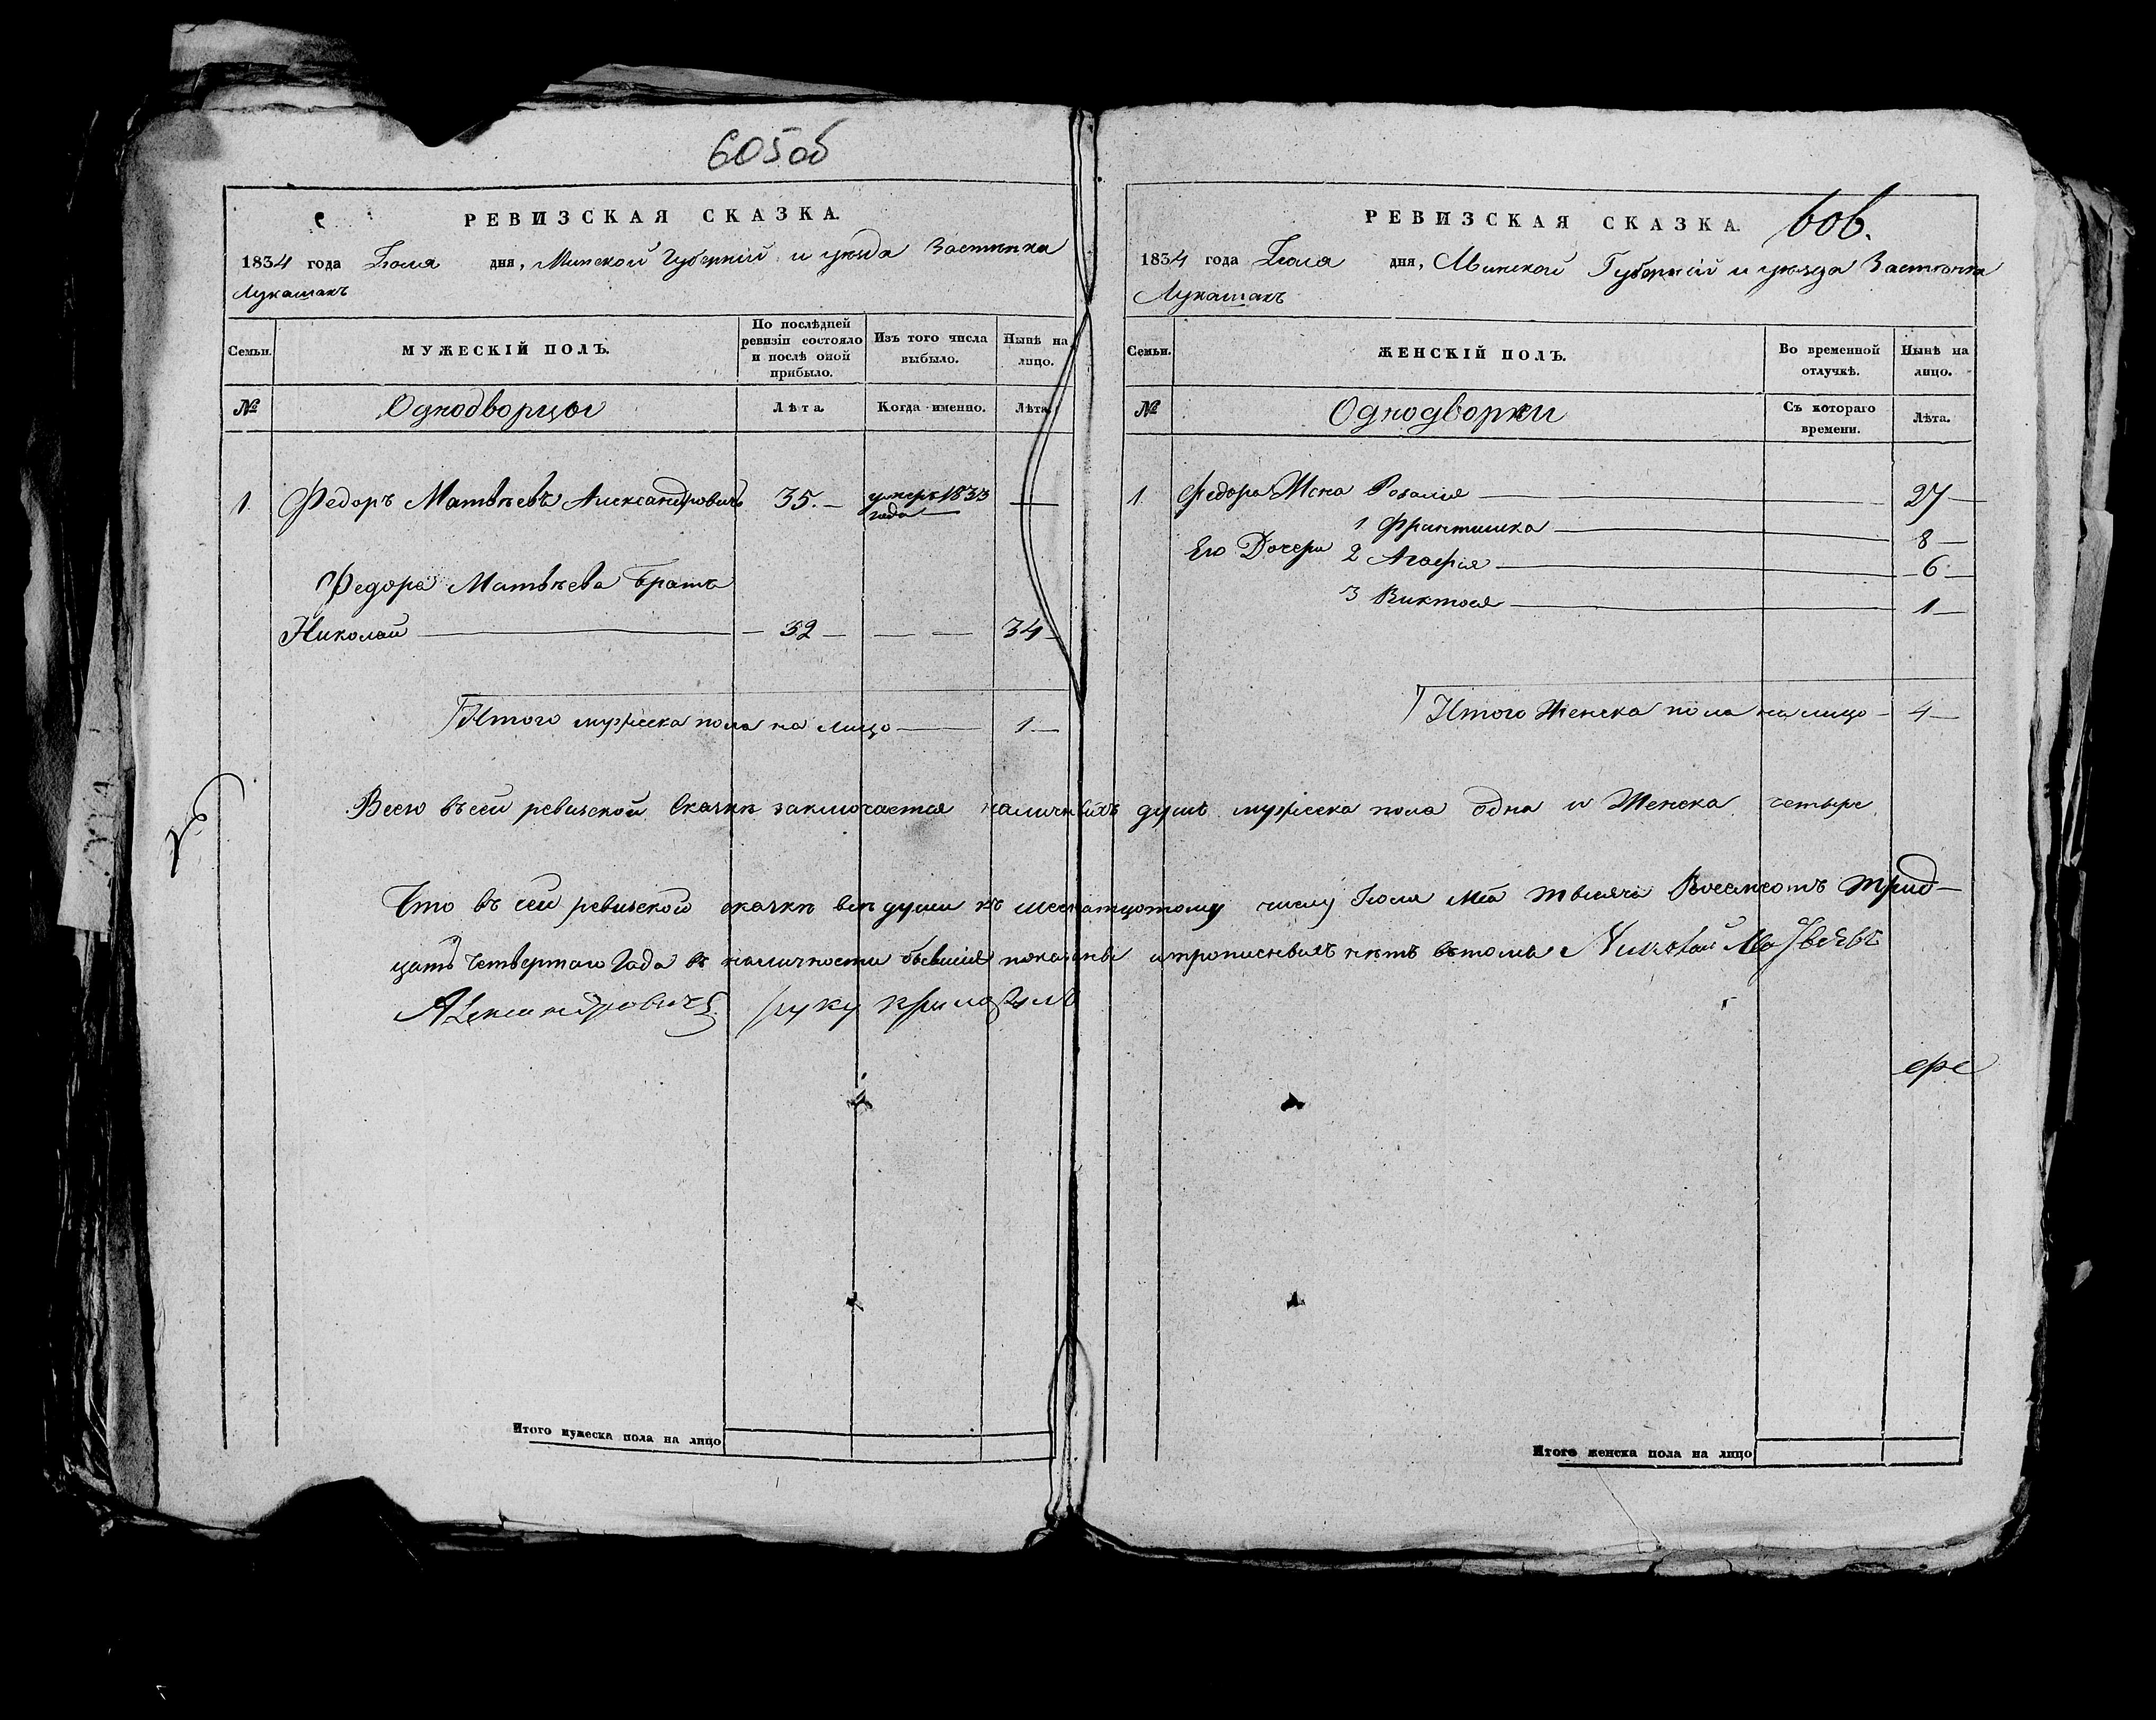 605об
РЕВИЗСКАЯ СКАЗКА.
1834 года Іюля дня, Минской Губерніи и уѣзда Застѣнка
Лукашакъ
Семьи.
МУЖЕСКІЙ ПОЛЪ.
По послѣдней
ревизіи состояло
и послѣ оной
прибыло.
Изъ того числа
выбыло.
Нынѣ на
лицо.
№
Однодворцы
Лѣта.
Когда именно.
Лѣта.
1. Федоръ Матвѣевъ Александровичъ 35. — умеръ 1833
года —
Федора Матвѣева братъ
Николай — 32 — — — 34 —
Итого мужеска пола на лицо — 1 —
606.
РЕВИЗСКАЯ СКАЗКА.
1834 года Іюля дня, Минской Губерніи и уѣзда Застѣнка
Лукашакъ
Семьи.
ЖЕНСКІЙ ПОЛЪ.
Во временной
отлучкѣ.
Нынѣ на
лицо.
№
Однодворки
Съ котораго
времени.
Лѣта.
1 Федора Жена Розалія — 27 —
1 Франтишка — 8 —
Его Дочери 2 Агафія — 6 —
3 — 1 —
Итого Женска пола на лицо — 4 —
Всего въ сей ревизской сказкѣ заключается наличныхъ душъ мужеска пола одна и Женска четыре
Что въ сей ревизской сказкѣ всѣ души къ числу Іюля тысяча Восемсотъ Трид-
цать Четвертаго Года въ наличности бывшія показаны и прописныхъ нѣтъ въ томъ Николай Матвѣевъ
Александровичъ руку приложилъ
Итого мужеска пола на лицо
Итого женска пола на лицо